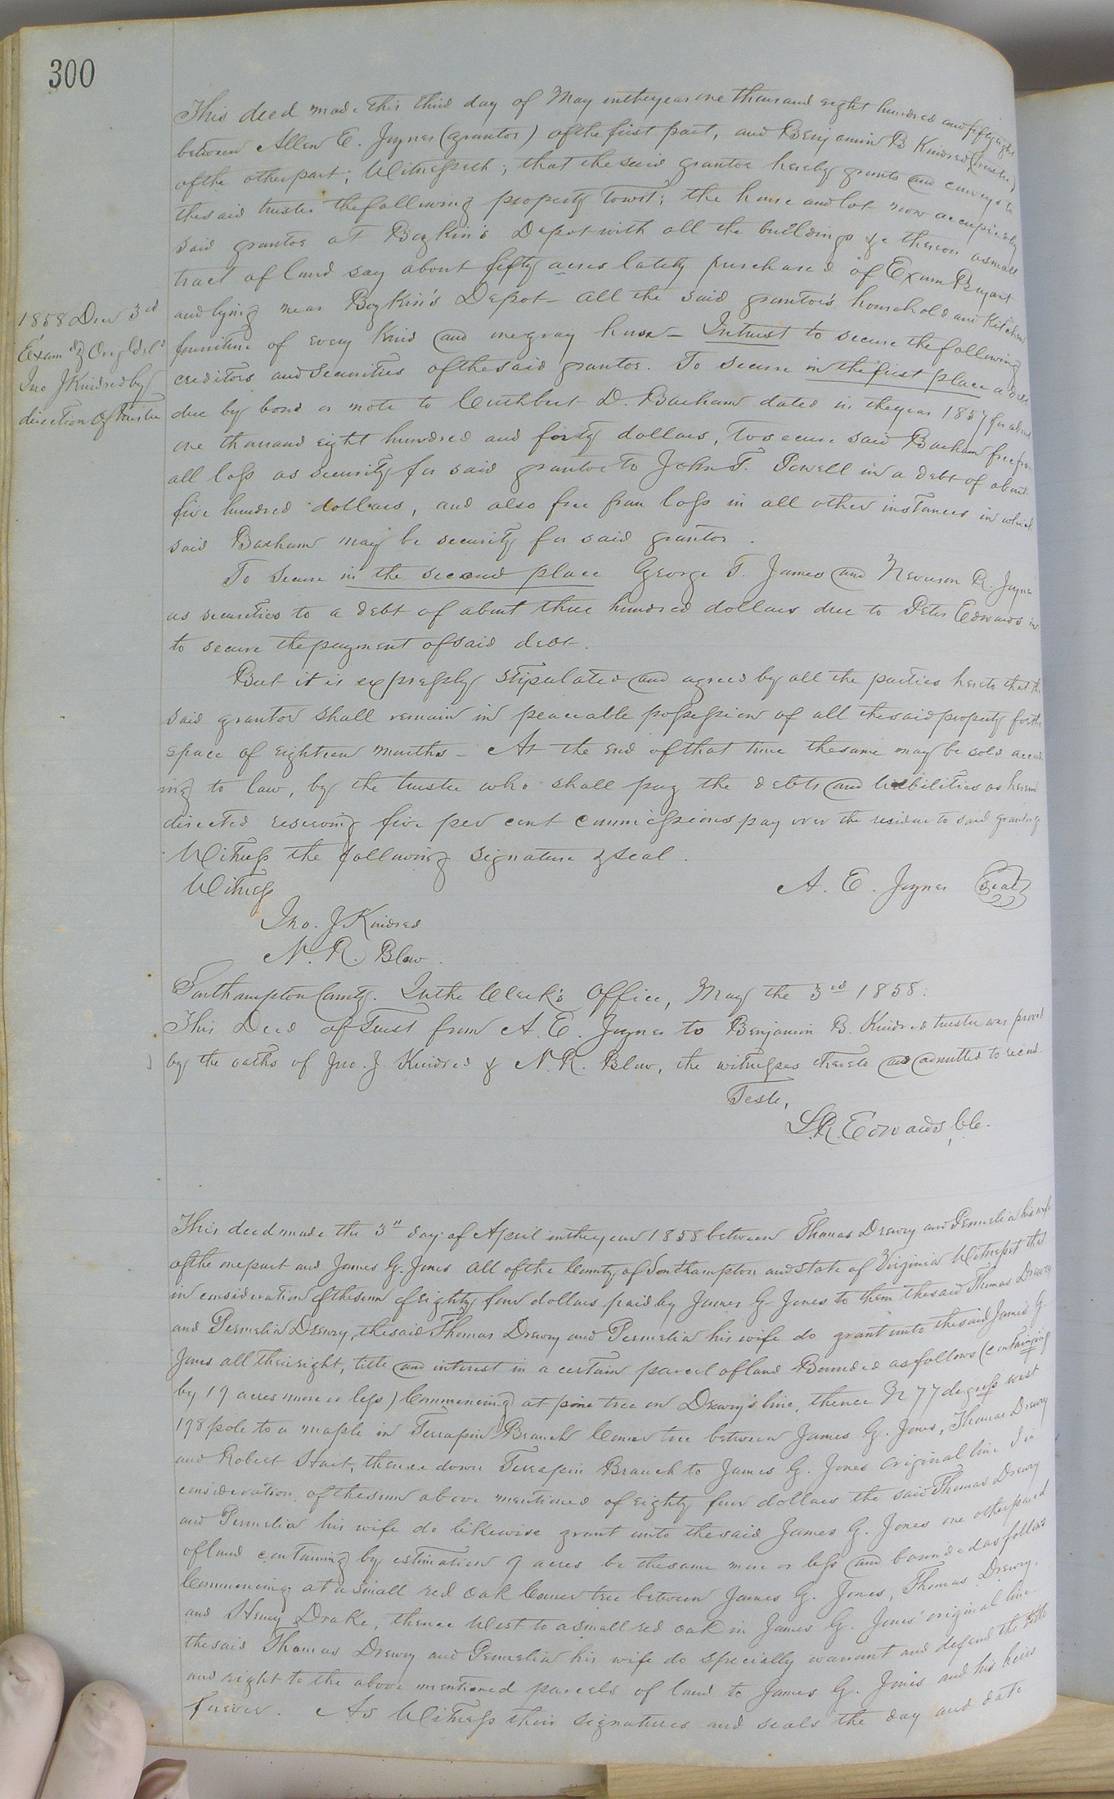 300
This deed made this third day of May in the year one thousand eight hundred and fifty eight
between Allen E. Joyner (grantor) of the first part, and Benjamin B Kindred (trustee)
of the other part; Witnesseth; that the said grantor hereby grants and conveys to
the said trustee the following property towit; the house and lot now occupied by
said grantor at Boykin's Depot with all the buildings &c thereon a small
tract of land say about fifty acres lately purchased of Exum Bryant
and lying near Boykin's Depot - all the said grantor's household and Kitchen
furniture of every kind and one gray horse - In trust to secure the following
creditors and securities of the said grantor. To secure in the first place a debt
due by bond or note to Cuthbert D. Barham dated in the year 1857 for about
one thousand eight hundred and forty dollars, to secure said Barham free from
all loss as security for said grantor to John T. Powell in a debt of about
five hundred dollars, and also free from loss in all other instances in which
said Barham may be security for said grantor.
To secure in the second place George T. James and Newsom R. Joyner
as securities to a debt of about three hundred dollars due to Peter Edwards
to secure the payment of said debt.
But it is expressly stipulated and agreed by all the parties hereto that the
said grantor shall remain in peaceable possession of all the said property for the
space of eighteen months - At the end of that time the same may be sold accord
ing to law, by the trustee who shall pay the debts and liabilities as herein
directed reserving five per cent commissions pay over the residue to said grantor
Witness the following signature & seal.
Witness
A. E. Joyner (Seal)
Jno. J Kindred
N. R. Blow
Southampton County. In the Clerk's Office, May the 3rd 1858.
This Deed of Trust from A. E. Joyner to Benjamin B. Kindred trustee was proved
by the oaths of Jno. J Kindred & N. R. Blow, the witnesses thereto and admitted to record
Teste,
L. R. Edwards, Clk.
1858 Dec 3rd
Exam'd & Orig'l del'd
Jno J Kindred by
direction of Trustee
This deed made the 3rd day of April in the year 1858 between Thomas Drewry and Permelia his wife
of the one part and James G. Jones all of the County of Southampton and State of Virginia Witnesseth that
in consideration of the sum of eighty four dollars paid by James G. Jones to them the said Thomas Drewry
and Permelia Drewry, the said Thomas Drewry and Permelia his wife do grant unto the said James G.
Jones all their right, title and interest in a certain parcel of land Bounded as follows (containing
by 19 acres more or less) Commencing at pine tree on Drewry's line, thence N 77 degrees west
198 pole to a maple in Terrapin Branch Corner tree between James G. Jones, Thomas Drewry
and Robert Hart, thence down Terrapin Branch to James G. Jones original line In
consideration of the sum above mentioned of eighty four dollars the said Thomas Drewry
and Permelia his wife do likewise grant unto the said James G. Jones one other parcel
of land containing by estimation 9 acres be the same more or less and bounded as follows
Commencing at a small red oak Corner tree between James G. Jones, Thomas Drewry,
and Henry Drake, thence West to a small red oak in James G. Jones' original line
the said Thomas Drewry and Permelia his wife do specially warrant and defend the title
and right to the above mentioned parcels of land to James G. Jones and his heirs
forever. As Witness their signatures and seals the day and date